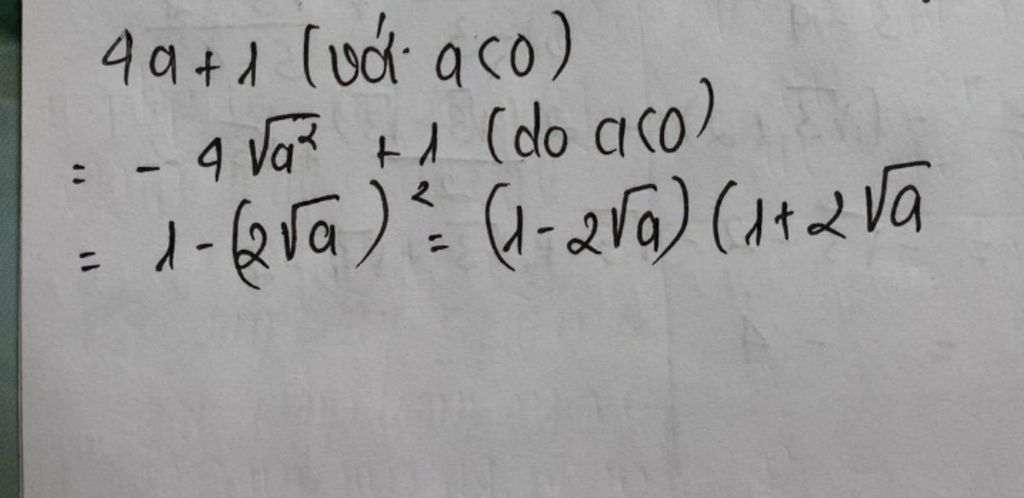 4a + 1 (với a < 0)
= - 4 √a² + 1 (do a < 0)
= 1 - (2√a)² = (1 - 2√a) (1 + 2√a